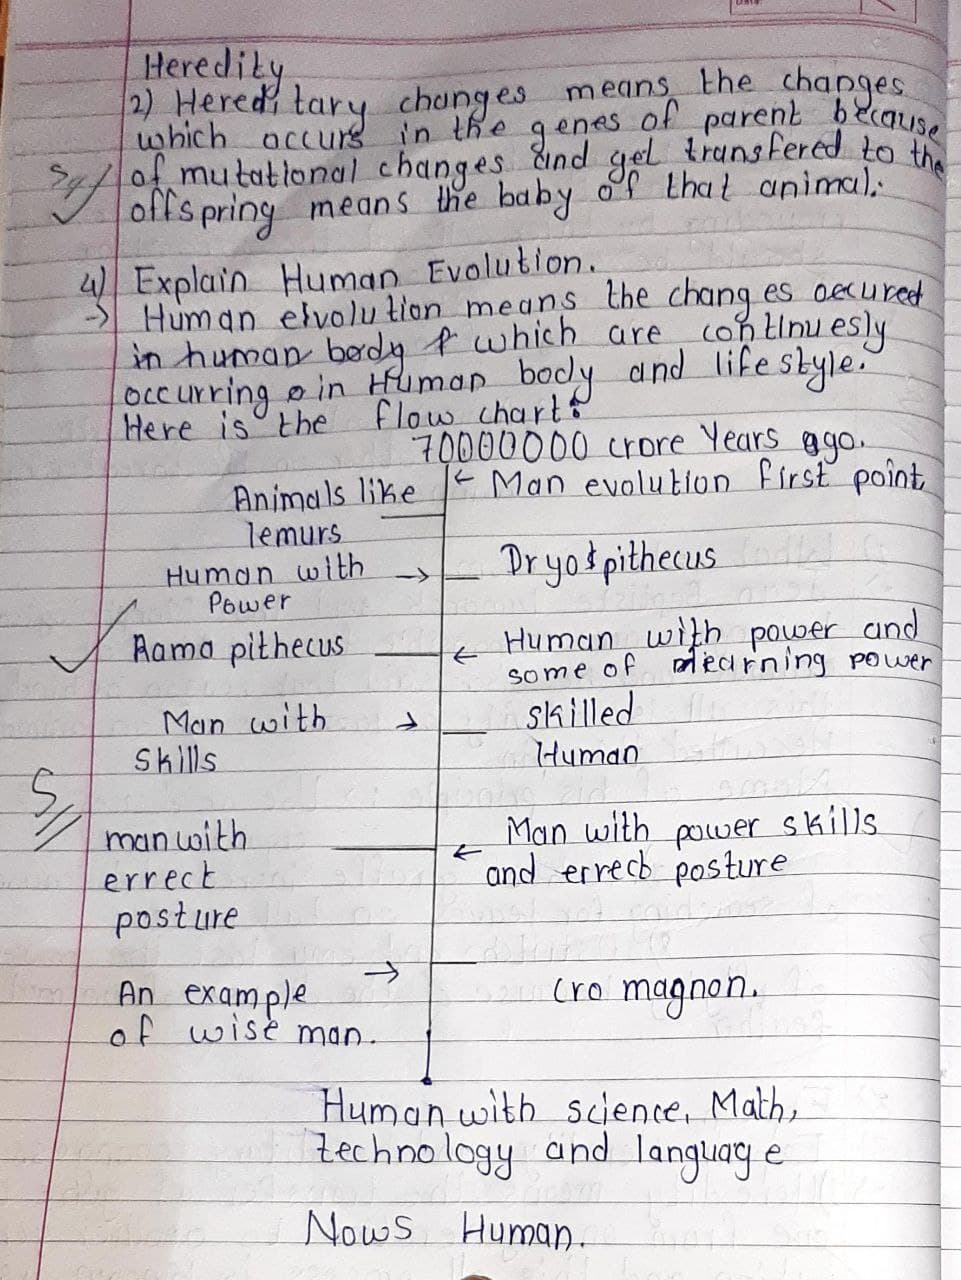 Heredity
2) Hereditary changes means the changes
which occurs in the genes of parent because
of mutational changes and get transfered to the
offspring means the baby of that animal.
4) Explain Human Evolution.
→ Human elvolution means the changes occured
in human body & which are continuesly
occurring in Human body and lifestyle.
Here is the flow chart:
70000000 crore Years ago.
Animals like ← Man evolution first point
lemurs
Human with → Dryopithecus
Power
Rama pithecus ← Human with power and
some of learning power
Man with → skilled
skills Human
man with ← Man with power skills
errect and errect posture
posture
An example → Cro magnon.
of wise man.
Human with science, Math,
technology and language
Nows Human.